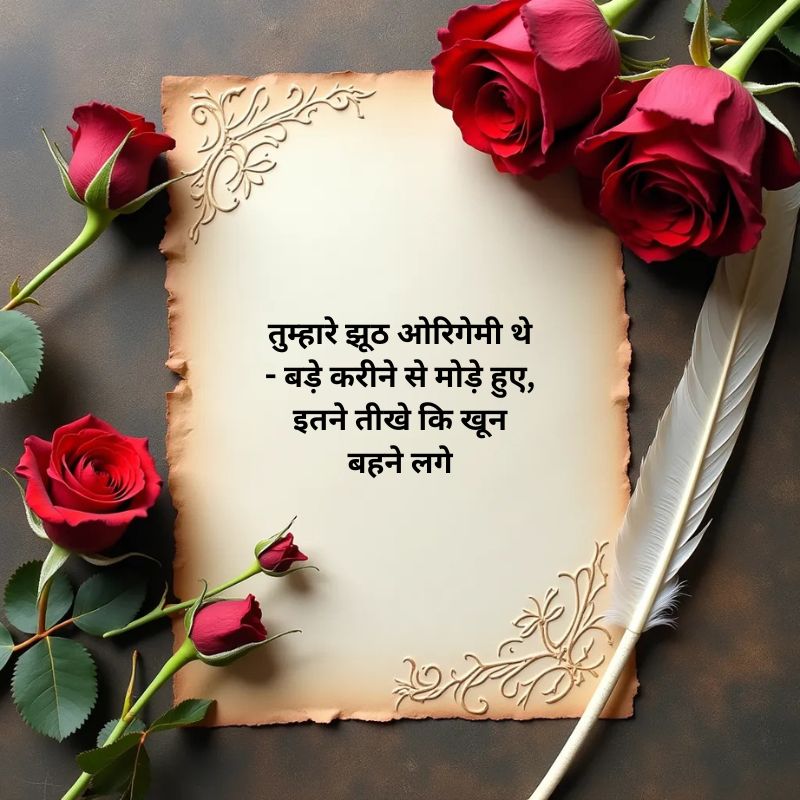 तुम्हारे झूठ ओरिगेमी थे
- बड़े करीने से मोड़े हुए,
इतने तीखे कि खून
बहने लगे